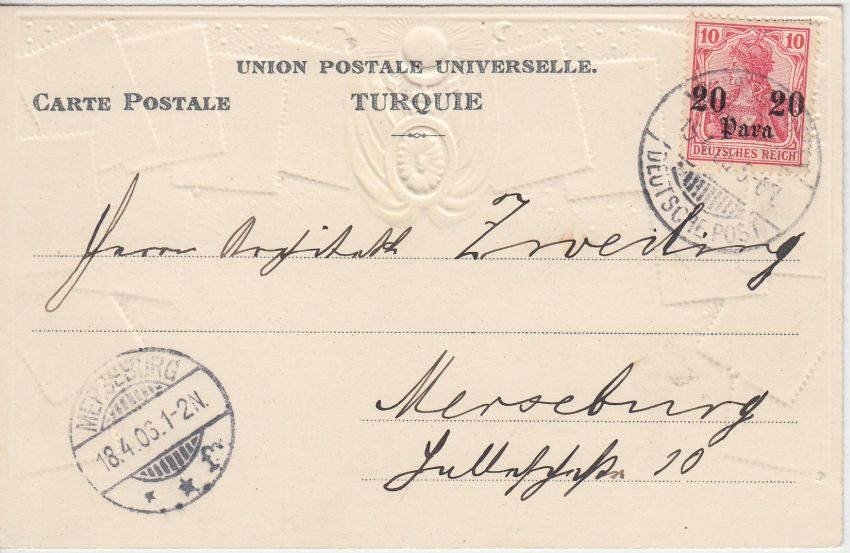 UNION POSTALE UNIVERSELLE.
CARTE POSTALE TURQUIE
10 10
20 20
Para
DEUTSCHES REICH
DEUTSCHE POST
Herrn Architekt Zweiling
Merseburg
10
MERSEBURG
18.4.06.1-2N.
* * f*